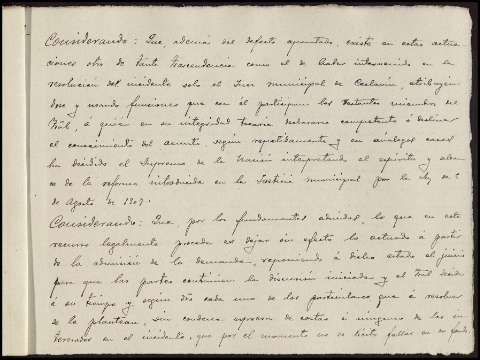 Considerando: Que, además del defecto apuntado, existe en estas actua-
ciones otro de tanta trascendencia como el de haber intervenido en la
resolucion del incidente solo el Juez municipal de Ceclavin, atribuyen-
dose y usando funciones que con él participan los restantes miembros del
Tbál, á quien en su integridad tocaria declararse competente ó declinar
el conocimiento del asunto, segun repetidamente y en análogos casos
ha decidido el Supremo de la Nación interpretando el espiritu y alcan-
ce de la reforma introducida en la Justicia municipal por la ley de 5
de Agosto de 1907.
Considerando: Que, por los fundamentos aducidos, lo que en este
recurso legalmente procede es dejar sin efecto lo actuado á partir
de la admisión de la demanda, reponiendo á dicho estado el juicio
para que las partes continuen la discusión iniciada y el Tbál decida
á su tiempo y segun dro cada uno de los particulares que á resolver
se le plantean, sin condena expresa de costas á ninguno de los in-
teresados en el incidente, que por el momento no se limita fallar en su fondo